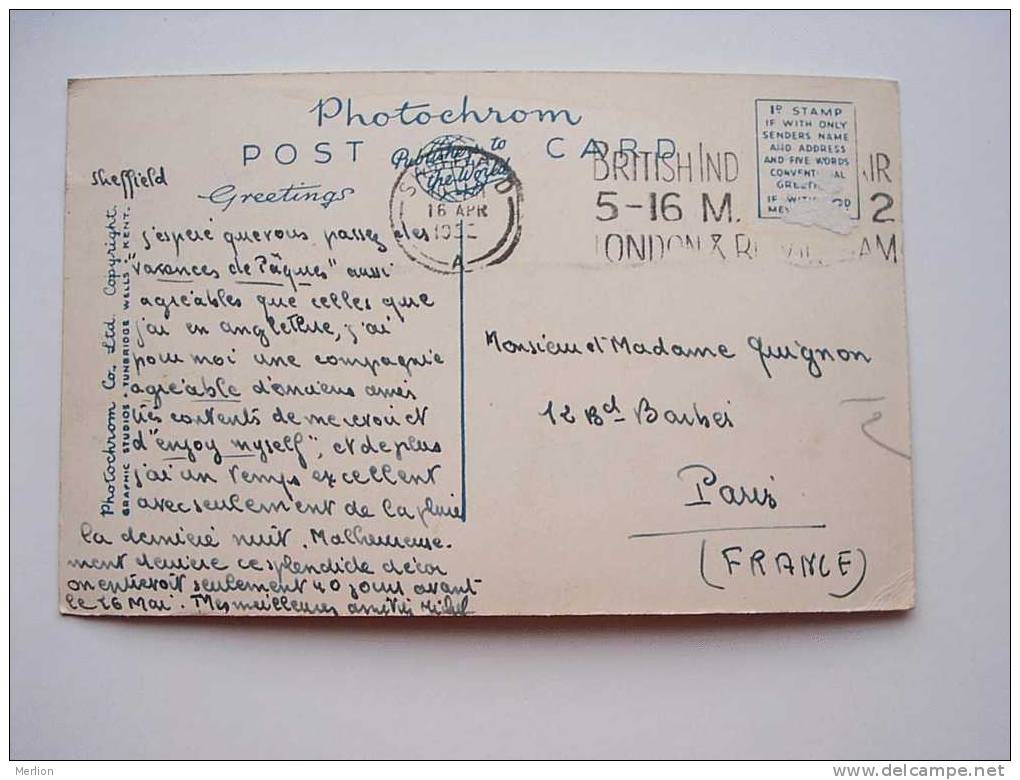 Photochrom
POST CARD
Publishers to
the World
Greetings
Sheffield
Photochrom Co., Ltd. Copyright.
GRAPHIC STUDIOS • TUNBRIDGE WELLS • KENT.
16 APR
195
A
BRITISH IND IR
5-16 M. 2
LONDON & B AM
1D STAMP
IF WITH ONLY
SENDERS NAME
AND ADDRESS
AND FIVE WORDS
CONVENT AL
GREET
IF WITH
j'espère que vous passez des
"vacances de Pâques" aussi
agréables que celles que
j'ai en angleterre, j'ai
pour moi une compagnie
agréable d'anciens amis
très contents de me revoir et
d'"enjoy myself", et de plus
j'ai un temps excellent
avec seulement de la pluie
la dernière nuit. Malheureuse-
ment derrière ce splendide décor
on entrevoit seulement 40 jours avant
le 26 Mai. Mes meilleures amitiés Michel
Monsieur et Madame Guignon
12 Bd Barbès
Paris
(FRANCE)
Merlion
delcampe.net